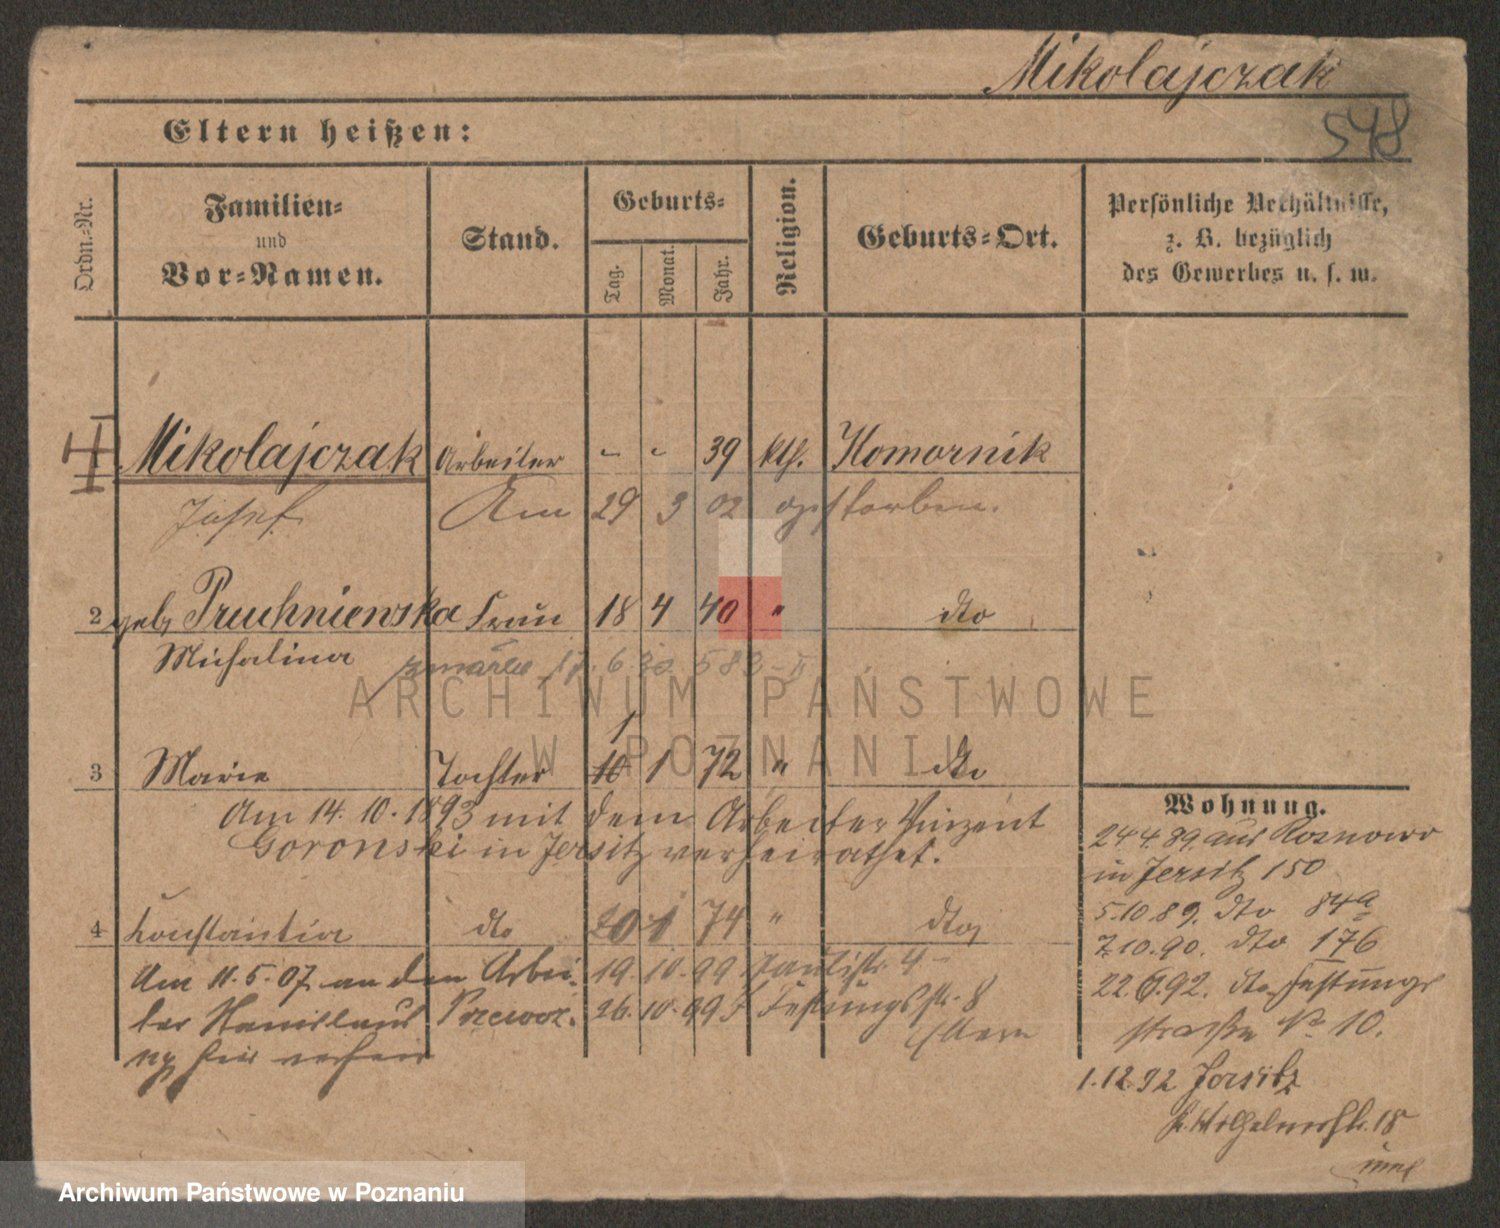 Mikolajczak
548
Eltern heißen:
Ordn.-Nr.
Familien-
und
Vor-Namen.
Stand.
Geburts-
Tag.
Monat.
Jahr.
Religion.
Geburts-Ort.
Persönliche Verhältnisse,
z. B. bezüglich
des Gewerbes u. s. w.
Mikolajczak Arbeiter - - 39 kth. Komornik
Josef Am 29 3 02 gestorben.
2 geb. Pruchniewska Frau 18 4 40 " dto
Michalina zmarła 17.6.30 583-II
1
3 Marie Tochter 10 1 72 " dto
Am 14.10.1893 mit dem Arbeiter Vinzent
Goronski in Jersitz verheirathet.
4 Konstantia dto 20 1 74 " dto
Am 11.5.07 an den Arbei-
ter Stanislaus Przewoz.
ny hier verheir
19.10.99 4
26.10.99 Festungsstr. 8
Eltern
Wohnung.
24.4.89 aus Rosnowo
in Jersitz 150
5.10.89. dto 84a
7.10.90. dto 176
22.6.92. dto Festungs
strasse No 10.
1.12.92 Jersitz
Kr. Wilhelmstr. 18
ARCHIWUM PAŃSTWOWE
W POZNANIU
Archiwum Państwowe w Poznaniu